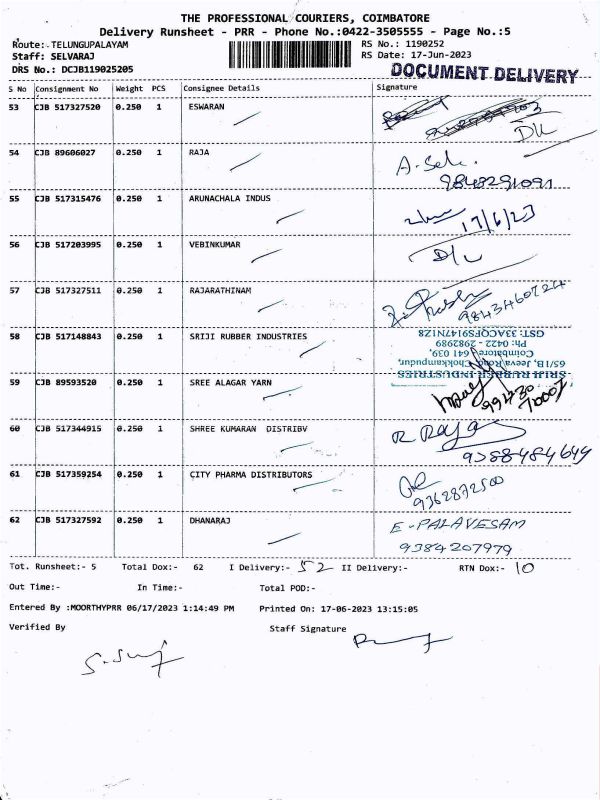 THE PROFESSIONAL COURIERS, COIMBATORE
Delivery Runsheet - PRR - Phone No.:0422-3505555 - Page No.:5
Route: TELUNGUPALAYAM RS No.: 1190252
Staff: SELVARAJ RS Date: 17-Jun-2023
DRS No.: DCJB119025205 DOCUMENT DELIVERY
S No Consignment No Weight PCS Consignee Details Signature
53 CJB 517327520 0.250 1 ESWARAN
54 CJB 89606027 0.250 1 RAJA
9848291091
55 CJB 517315476 0.250 1 ARUNACHALA INDUS
17/6/23
56 CJB 517203995 0.250 1 VEBINKUMAR
57 CJB 517327511 0.250 1 RAJARATHINAM
9843460724
58 CJB 517148843 0.250 1 SRIJI RUBBER INDUSTRIES
SRIJI RUBBER INDUSTRIES
65/1B, Jeeva Road, Chokkampudur,
Coimbatore - 641 039.
Ph: 0422 - 2982989
GST: 33ACQFS9147N1Z8
59 CJB 89593520 0.250 1 SREE ALAGAR YARN
60 CJB 517344915 0.250 1 SHREE KUMARAN DISTRIBV
R Raja
9388484649
61 CJB 517359254 0.250 1 CITY PHARMA DISTRIBUTORS
9362872500
62 CJB 517327592 0.250 1 DHANARAJ
E-PALAVESAM
9384207979
Tot. Runsheet:- 5 Total Dox:- 62 I Delivery:- 52 II Delivery:- RTN Dox:- 10
Out Time:- In Time:- Total POD:-
Entered By :MOORTHYPRR 06/17/2023 1:14:49 PM Printed On: 17-06-2023 13:15:05
Verified By Staff Signature